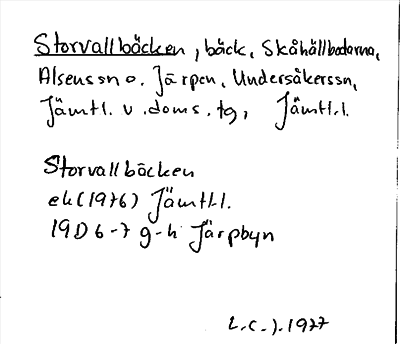 Storvallbäcken, bäck, Skåhållbodarna,
Alsenssn o. Järpen, Undersåkerssn,
Jämtl. v. doms. tg, Jämtl.l.
Storvallbäcken
ek (1976) Jämtl.l.
19D 6-7 g-h Järpbyn
L.C.J. 1977